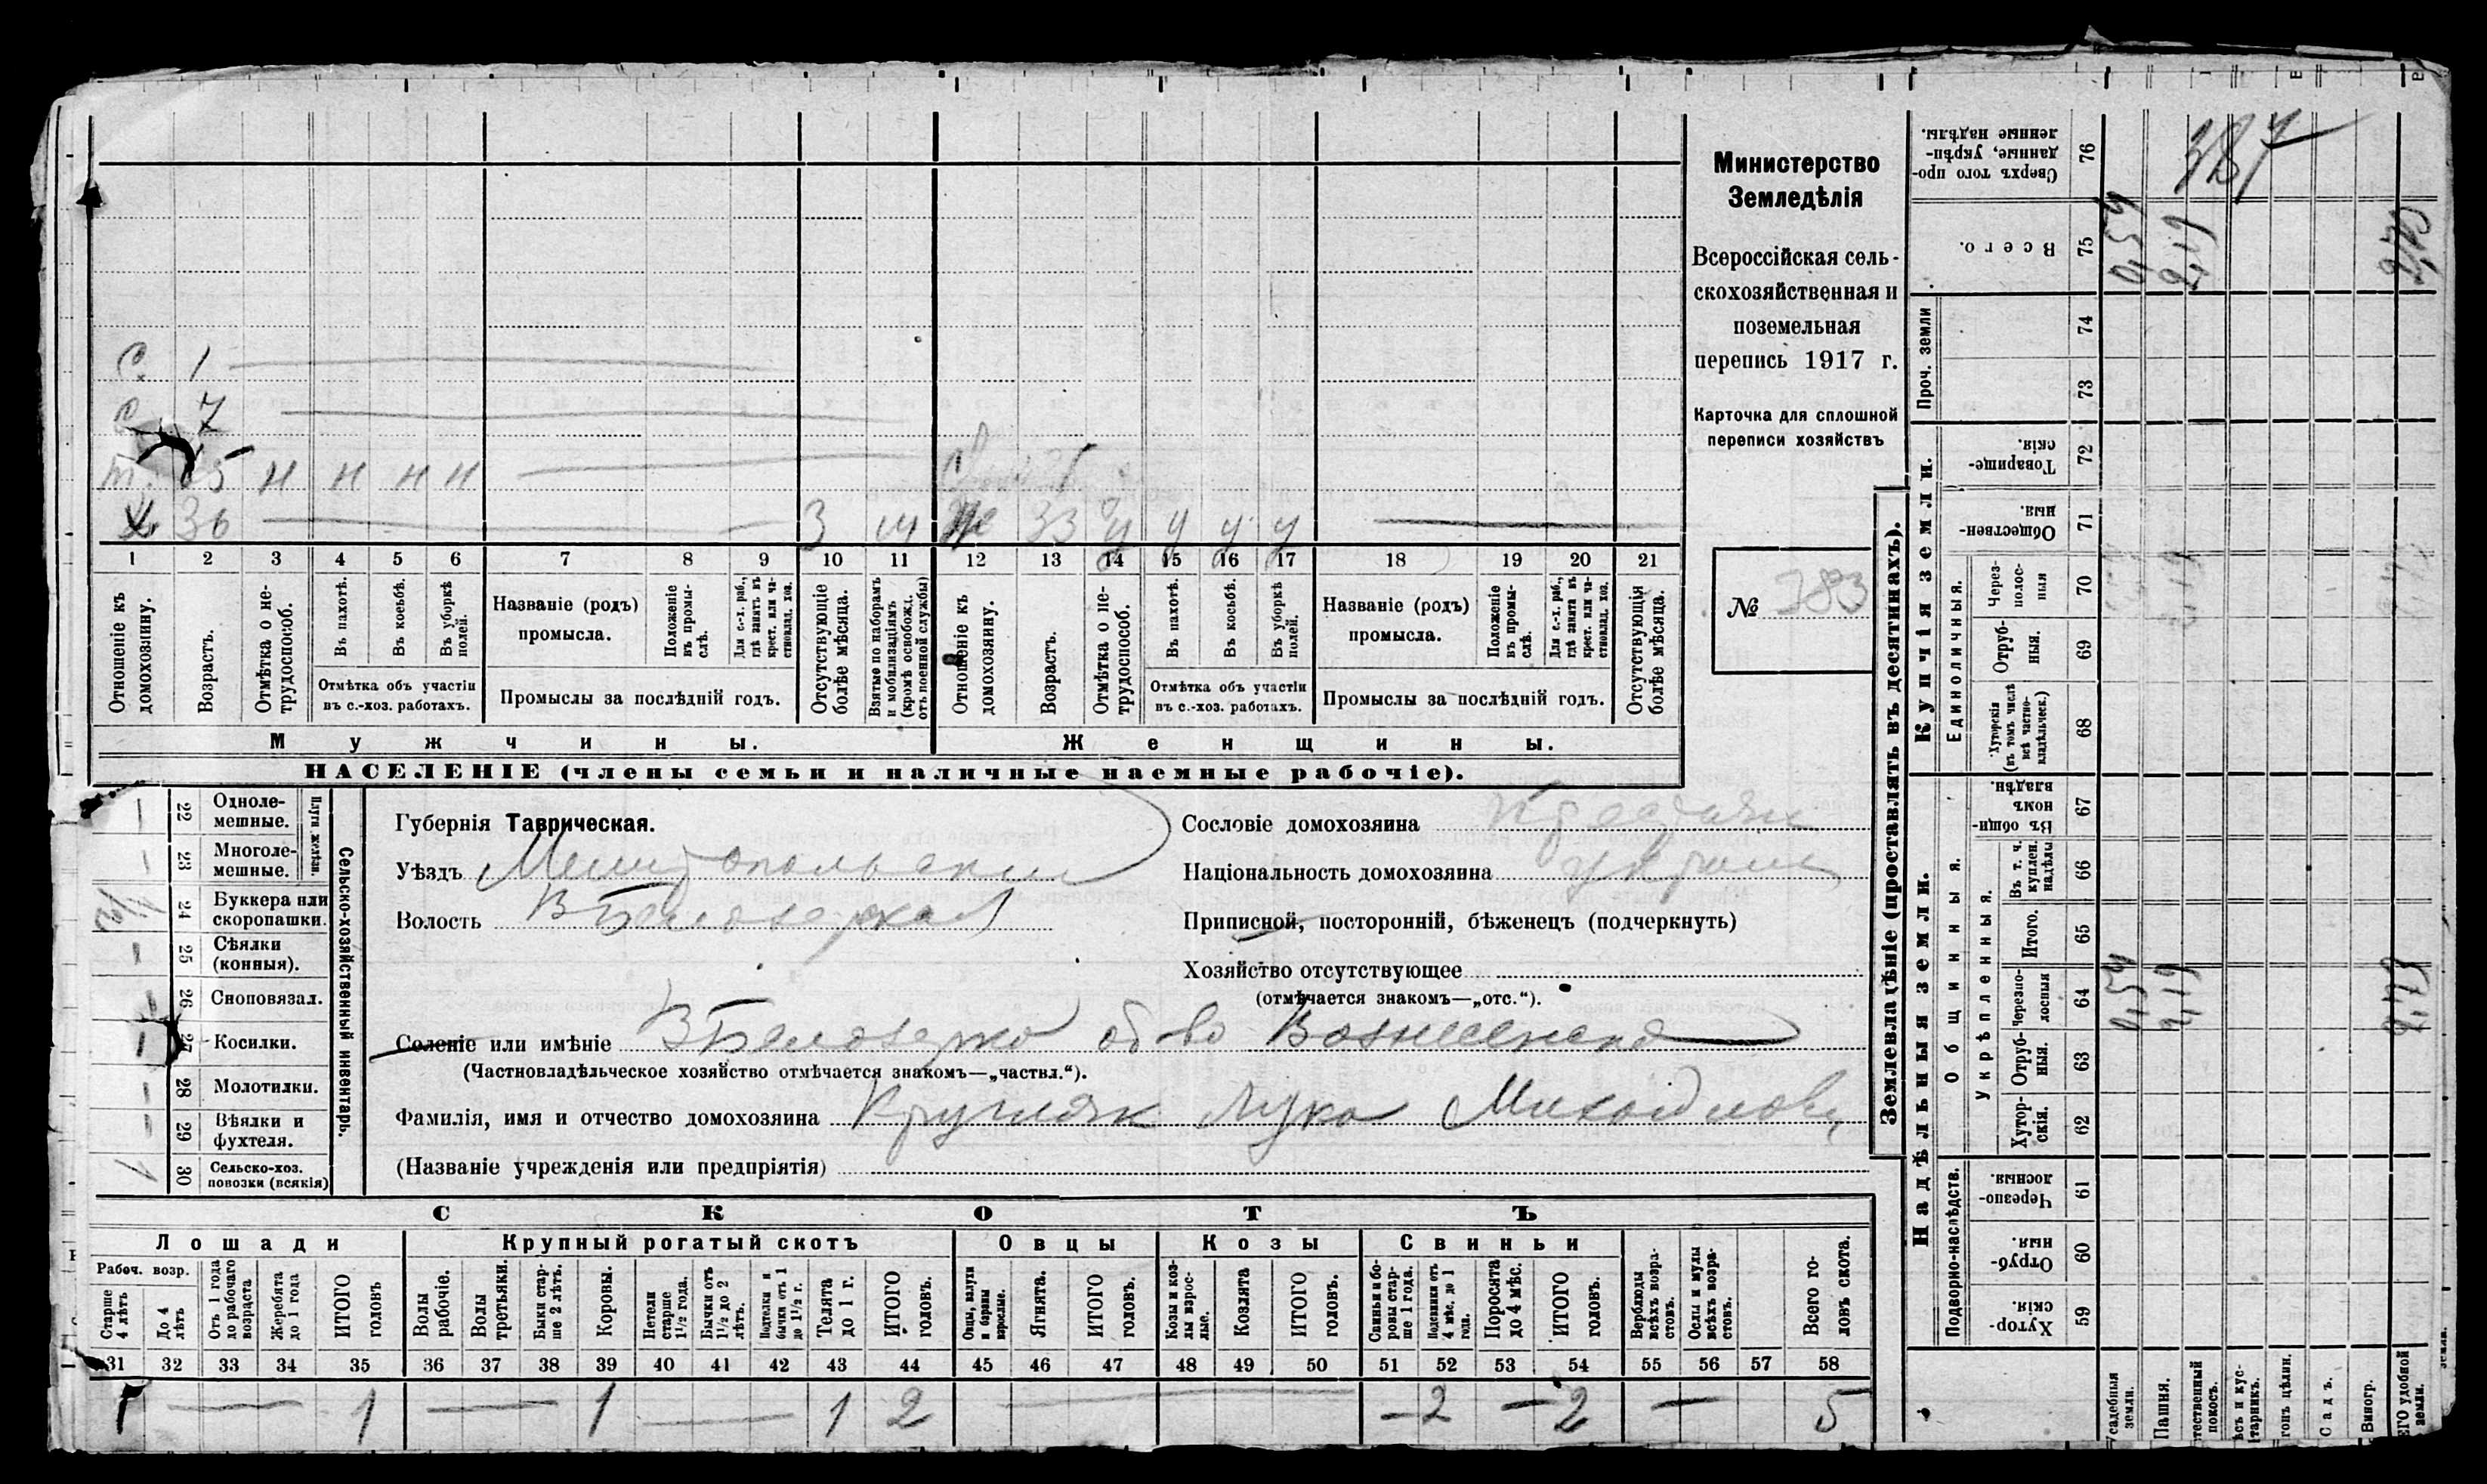 С. 1
с 7
т. 65 н н н н
Х. 36 3 м Же 33 у у у у
1 2 3 4 5 6 7 8 9 10 11 12 13 14 15 16 17 18 19 20 21
Отношеніе къ домохозяину.
Возрастъ.
Отмѣтка о нетрудоспособ.
Въ пахотѣ.
Въ косьбѣ.
Въ уборкѣ полей.
Отмѣтка объ участіи
въ с.-хоз. работахъ.
Названіе (родъ)
промысла.
Положеніе въ промыслѣ.
Для с.-х. раб., гдѣ занятъ въ крест. или частновлад. хоз.
Промыслы за послѣдній годъ.
Отсутствующіе болѣе мѣсяца.
Взятые по наборамъ и мобилизаціямъ (кромѣ освобожд. отъ военной службы)
Отношеніе къ домохозяину.
Возрастъ.
Отмѣтка о нетрудоспособ.
Въ пахотѣ.
Въ косьбѣ.
Въ уборкѣ полей.
Отмѣтка объ участіи
въ с.-хоз. работахъ.
Названіе (родъ)
промысла.
Положеніе въ промыслѣ.
Для с.-х. раб., гдѣ занята въ крест. или частновлад. хоз.
Промыслы за послѣдній годъ.
Отсутствующія болѣе мѣсяца.
Мужчины.
Женщины.
НАСЕЛЕНІЕ (члены семьи и наличные наемные рабочіе).
Министерство
Земледѣлія
Всероссійская сель-
скохозяйственная и
поземельная
перепись 1917 г.
Карточка для сплошной
переписи хозяйствъ
№ 383
Сельско-хозяйственный инвентарь.
Плуги желѣзн.
22 Одноле-
мешные.
23 Многоле-
мешные.
24 Буккера или
скоропашки.
25 Сѣялки
(конныя).
26 Сноповязал.
27 Косилки.
28 Молотилки.
29 Вѣялки и
фухтеля.
1 30 Сельско-хоз.
повозки (всякія)
Губернія Таврическая.
Уѣздъ Мелитопольскій
Волость В Белозерская
Сословіе домохозяина
Національность домохозяина
Приписной, посторонній, бѣженецъ (подчеркнуть)
Хозяйство отсутствующее
(отмѣчается знакомъ—„отс.“).
Селеніе или имѣніе В Белозерка об-во Вознесенска
(Частновладѣльческое хозяйство отмѣчается знакомъ—„частвл.“).
Фамилія, имя и отчество домохозяина Кругляк Лука Михайлов
(Названіе учрежденія или предпріятія)
СКОТЪ
Лошади
Крупный рогатый скотъ
Овцы
Козы
Свиньи
Рабоч. возр.
Старше 4 лѣтъ
До 4 лѣтъ
Отъ 1 года до рабочаго возраста
Жеребята до 1 года
ИТОГО головъ
Волы рабочіе.
Волы третьяки.
Быки старше 2 лѣтъ.
Коровы.
Нетели старше 1½ года.
Бычки отъ 1½ до 2 лѣтъ.
Подтелки и бычки отъ 1 до 1½ г.
Телята до 1 г.
ИТОГО головъ.
Овцы, валухи и бараны взрослые.
Ягнята.
ИТОГО головъ.
Козы и козлы взрослые.
Козлята
ИТОГО головъ.
Свиньи и боровы старше 1 года.
Подсвинки отъ 4 мѣс. до 1 года.
Поросята до 4 мѣс.
ИТОГО головъ.
Верблюды всѣхъ возрастовъ.
Ослы и мулы всѣхъ возрастовъ.
Всего головъ скота.
31 32 33 34 35 36 37 38 39 40 41 42 43 44 45 46 47 48 49 50 51 52 53 54 55 56 57 58
1 — 1 — 1 — 1 2 — — 2 — 2 — 5
Землевладѣніе (проставлять въ десятинахъ).
Купчія земли.
Надѣльныя земли.
Сверхъ того проданные, укрѣпленные надѣлы.
76
387
Всего.
75
0,54
Проч. земли
74
73
Товарищескія.
72
Общественныя.
71
Единоличныя.
Черезполосныя
70
Отрубныя.
69
Хуторскія (въ томъ числѣ всѣ частновладѣльческ.)
68
Общинныя.
Въ общинномъ владѣн.
67
Укрѣпленныя.
Въ т. ч. куплен. надѣлы
66
Итого.
65
Черезполосныя
64
0,54
Отрубныя.
63
Хуторскія.
62
Подворно-наслѣдств.
Черезполосныя.
61
Отрубныя.
60
Хуторскія.
59
Усадебныя земли.
Пашня.
Садъ.
Виногр.